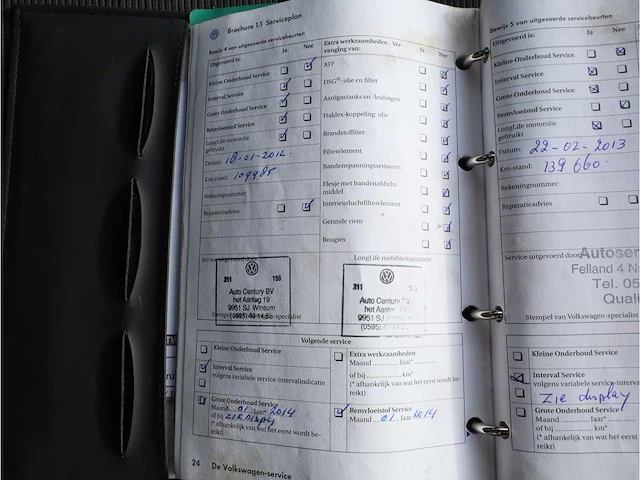 Brochure 1.1 Serviceplan
Bewijs 4 van uitgevoerde servicebeurten
Uitgevoerd is: Ja Nee
Kleine Onderhoud Service
Interval Service
Grote Onderhoud Service
Remvloeistof Service
LongLife motorolie
gebruikt
Datum: 18-01-2012.
Km-stand: 109985
Rekeningnummer:
Reparatieadvies
Extra werkzaamheden / Ver-
vanging van: Ja Nee
ATF
DSG®: olie en filter
Aardgastanks en -leidingen
Haldex-koppeling: olie
Brandstoffilter
Filterelement
Bandenspanningssensoren
Flesje met bandenafdicht-
middel
Interieurluchtfilterelement
Getande riem
Bougies
Service uitgevoerd door
211 150
Auto Century BV
het Aanleg 19
9951 SJ Winsum
LongLife mobiliteitsgarantie
211
Auto Century
het Aanleg
9951 SJ
(0595)
Stempel van Volkswagen-specialist
Volgende service
Kleine Onderhoud Service
Interval Service
volgens variabele service-intervalindicatie
Grote Onderhoud Service
Maand 01 Jaar* 2014
of bij zie display
(* afhankelijk van wat het eerst wordt be-
reikt)
Extra werkzaamheden
Maand Jaar*
of bij km*
(* afhankelijk van wat het eerst wordt be-
reikt)
Remvloeistof Service
Maand 01 Jaar 2014
24 De Volkswagen-service
Bewijs 5 van uitgevoerde servicebeurten
Uitgevoerd is: Ja Nee
Kleine Onderhoud Service
Interval Service
Grote Onderhoud Service
Remvloeistof Service
LongLife motorolie
gebruikt
Datum: 22-02-2013
Km-stand: 139 660
Rekeningnummer:
Reparatieadvies
Service uitgevoerd door
Autoser
Felland 4 N
Tel. 05
Quali
Stempel van Volkswagen-specialist
Kleine Onderhoud Service
Interval Service
volgens variabele service-interva
zie display
Grote Onderhoud Service
Maand Jaar*
of bij km*
(* afhankelijk van wat het eerst w
reikt)